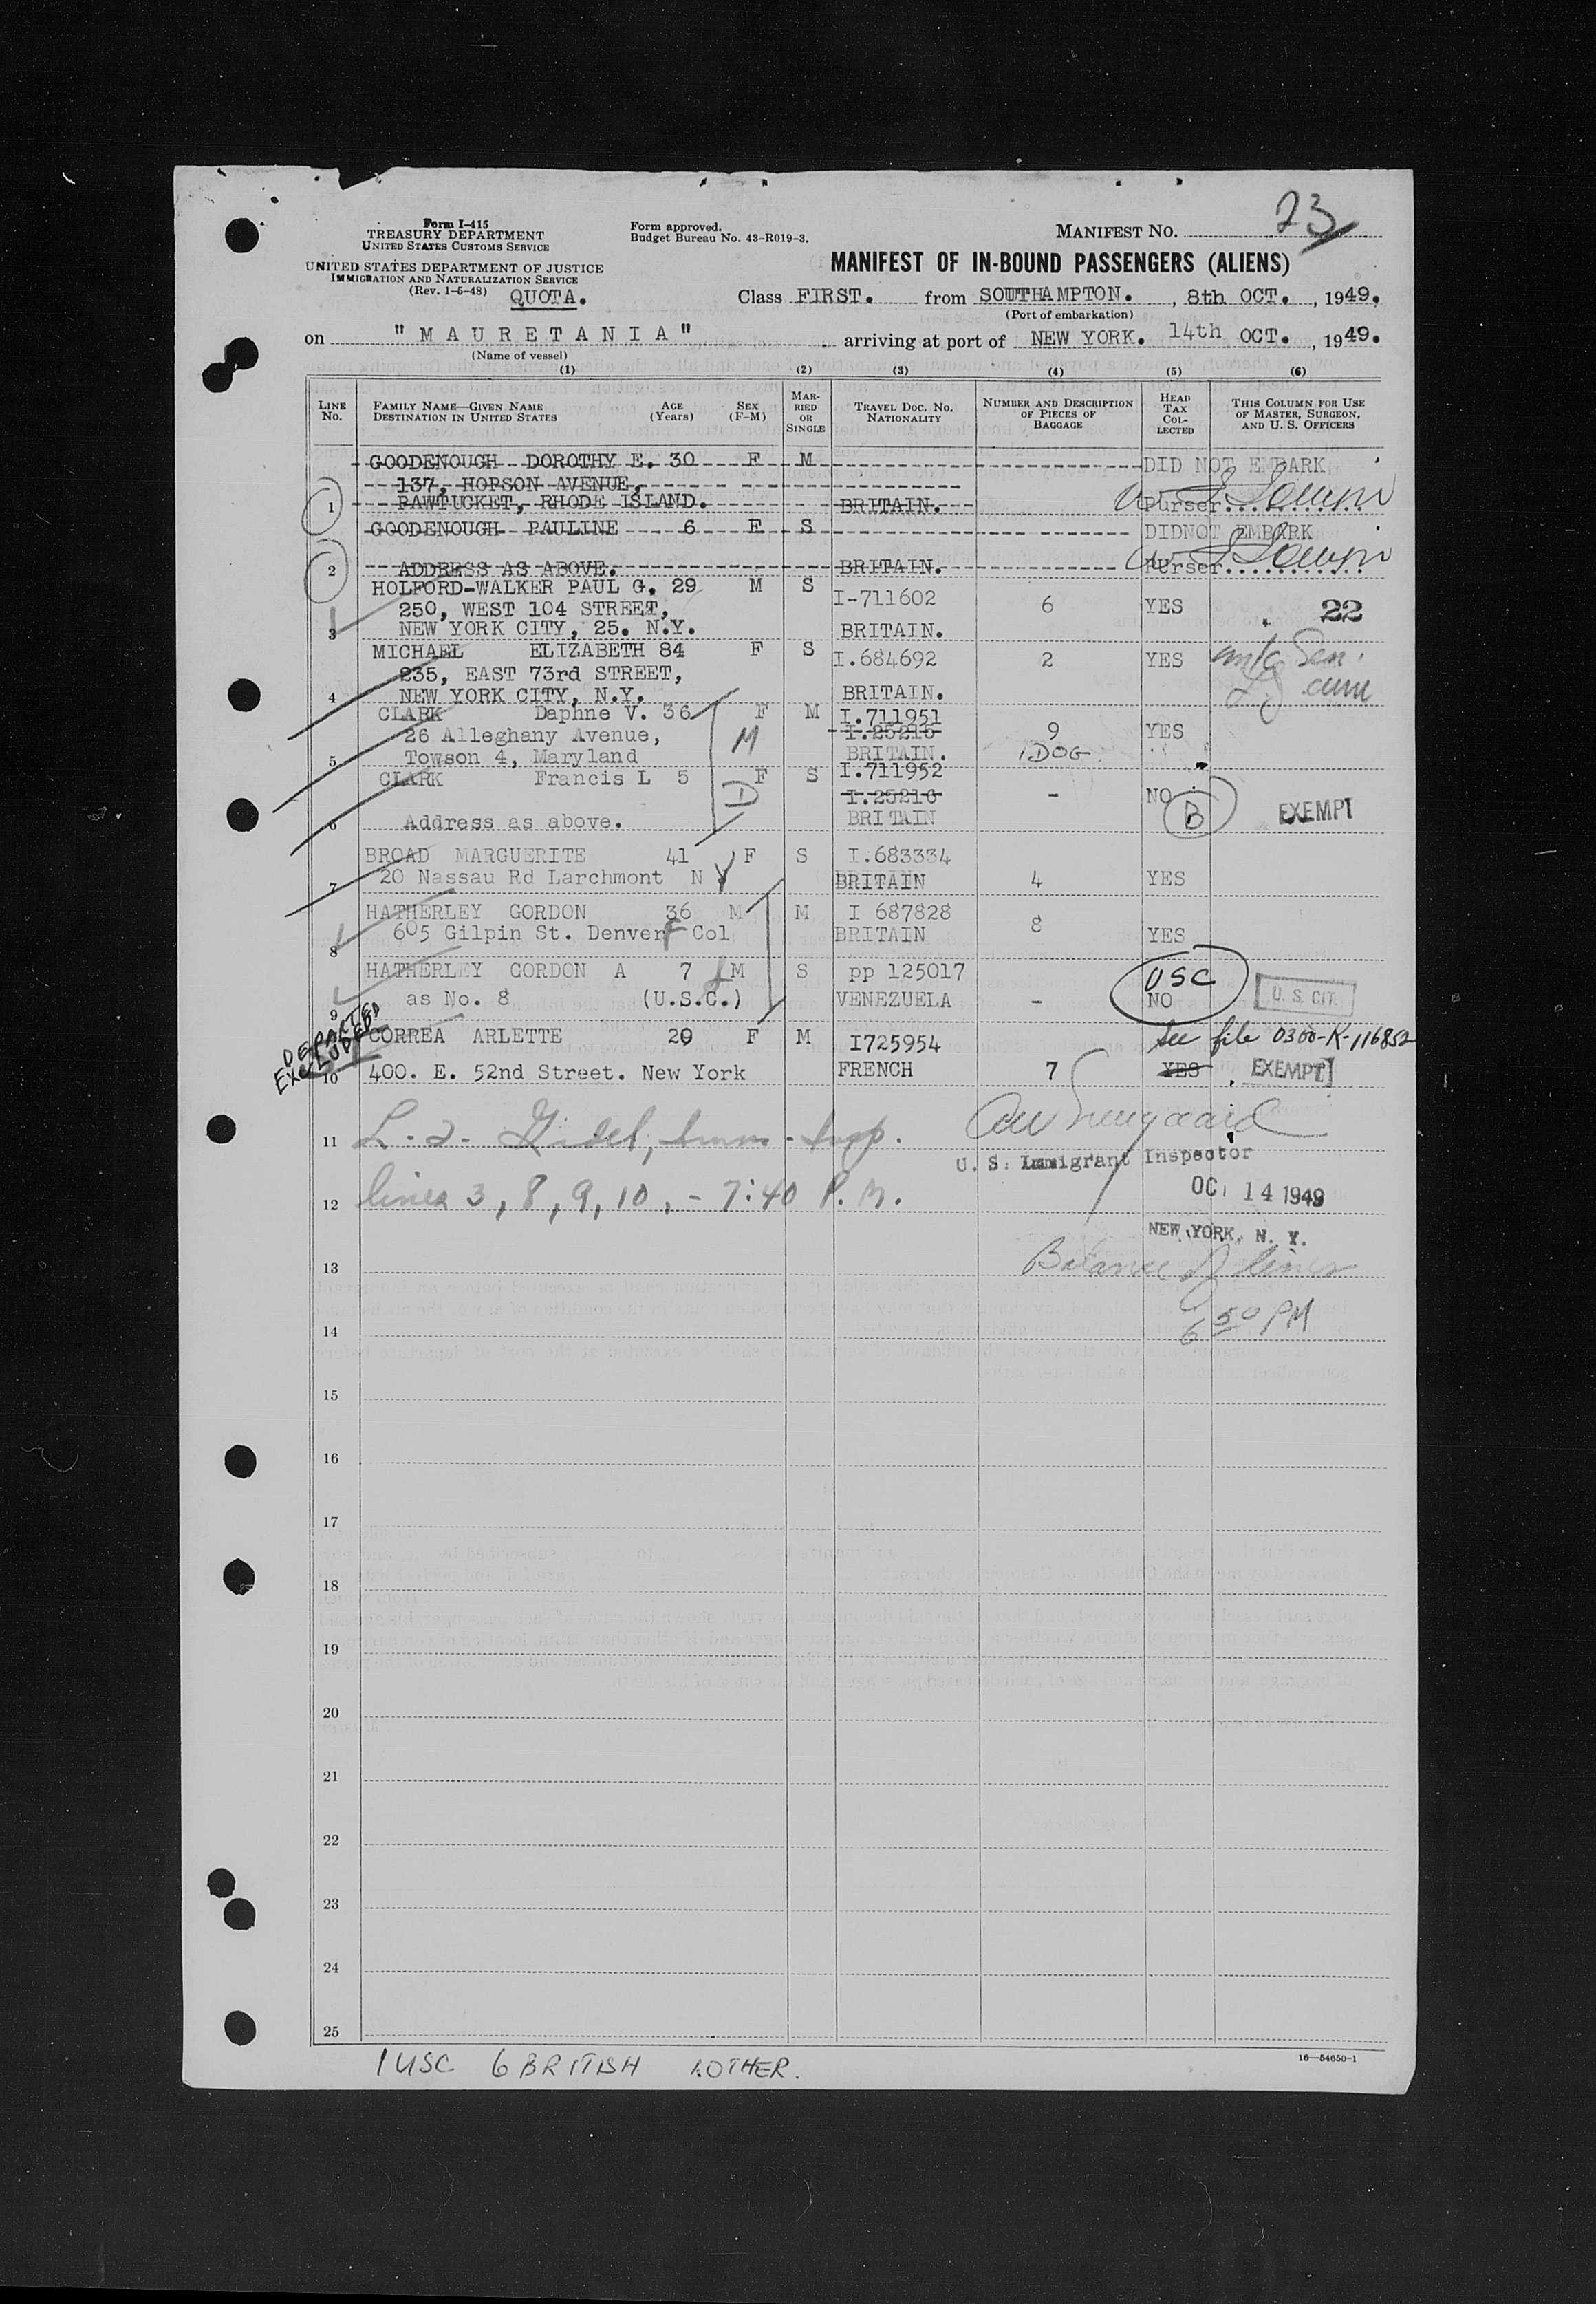 23
Form I-415
TREASURY DEPARTMENT
UNITED STATES CUSTOMS SERVICE
Form approved.
Budget Bureau No. 43-R019-3.
MANIFEST NO.
UNITED STATES DEPARTMENT OF JUSTICE
IMMIGRATION AND NATURALIZATION SERVICE
(Rev. 1-5-48) QUOTA.
MANIFEST OF IN-BOUND PASSENGERS (ALIENS)
Class FIRST. from SOUTHAMPTON. , 8th OCT. , 1949.
(Port of embarkation)
on "MAURETANIA" arriving at port of NEW YORK. 14th OCT. , 1949.
(Name of vessel)
(1) (2) (3) (4) (5) (6)
LINE NO. FAMILY NAME—GIVEN NAME DESTINATION IN UNITED STATES AGE (Years) SEX (F-M) MARRIED OR SINGLE TRAVEL DOC. NO. NATIONALITY NUMBER AND DESCRIPTION OF PIECES OF BAGGAGE HEAD TAX COLLECTED THIS COLUMN FOR USE OF MASTER, SURGEON, AND U. S. OFFICERS
GOODENOUGH DOROTHY E. 30 F M DID NOT EMBARK
137, HOPSON AVENUE,
1 PAWTUCKET, RHODE ISLAND. BRITAIN. Purser
GOODENOUGH PAULINE 6 F S DIDNOT EMBARK
2 ADDRESS AS ABOVE. BRITAIN. Purser
HOLFORD-WALKER PAUL G. 29 M S I-711602 6 YES 22
250, WEST 104 STREET,
3 NEW YORK CITY, 25. N.Y. BRITAIN.
MICHAEL ELIZABETH 84 F S I.684692 2 YES
235, EAST 73rd STREET,
4 NEW YORK CITY, N.Y. BRITAIN.
CLARK Daphne V. 36 F M I.711951
26 Alleghany Avenue, M I.25215 9 YES
5 Towson 4, Maryland BRITAIN. 1 DOG
CLARK Francis L 5 F S I.711952
D I.25216 - NO B EXEMPT
6 Address as above. BRITAIN
BROAD MARGUERITE 41 F S I.683334
7 20 Nassau Rd Larchmont N Y BRITAIN 4 YES
HATHERLEY GORDON 36 M M I 687828 8
8 605 Gilpin St. Denver Col BRITAIN YES
HATHERLEY GORDON A 7 M S pp 125017 USC
9 as No. 8 (U.S.C.) VENEZUELA - NO U. S. CIT.
DEPARTED
EXCLUDED
CORREA ARLETTE 20 F M I725954 See file 0300-K-116852
10 400. E. 52nd Street. New York FRENCH 7 YES EXEMPT
11 Imm. Insp.
U. S. Immigrant Inspector
12 lines 3, 8, 9, 10, - 7:40 P.M.
OCT 14 1949
NEW YORK, N. Y.
13 Balance of lines
14 6 50 PM
15
16
17
18
19
20
21
22
23
24
25
16—54650-1
1 USC 6 BRITISH 1 OTHER.